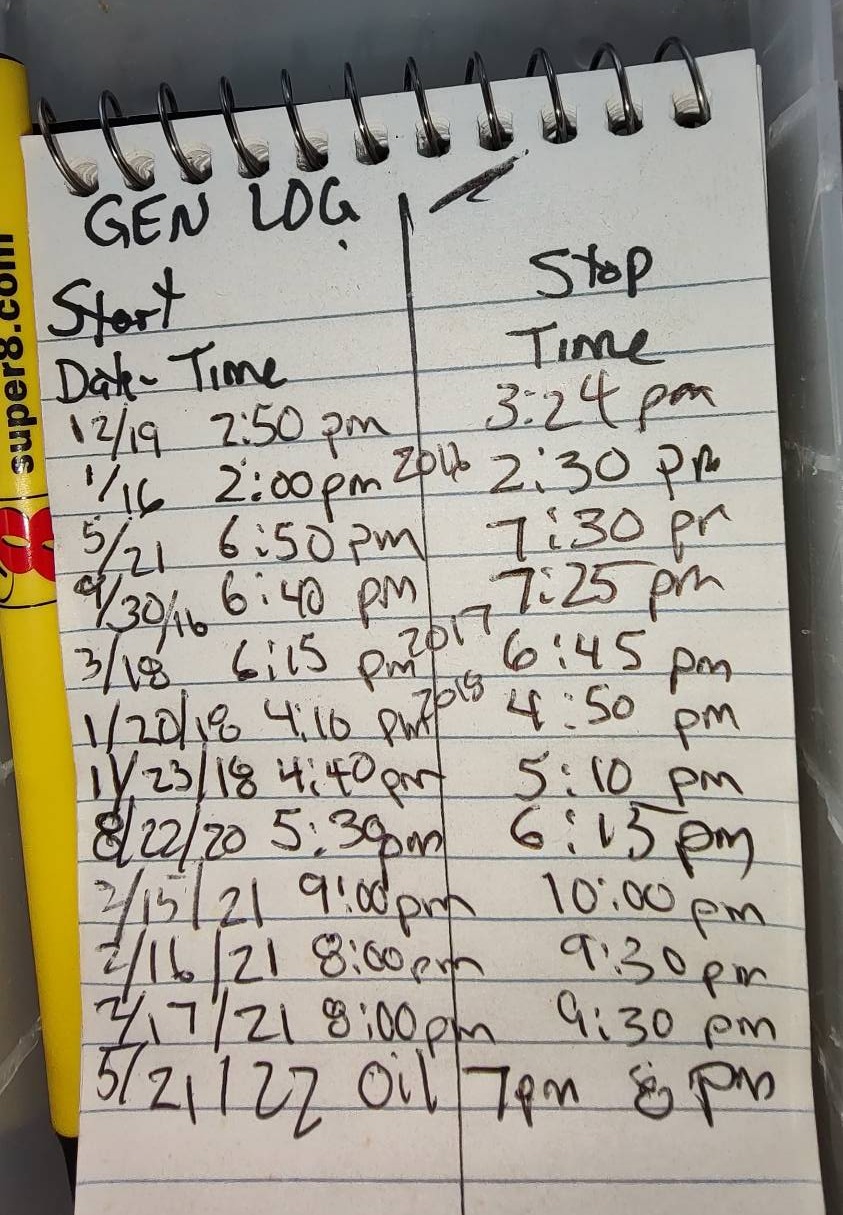 GEN LOG
Start Stop
Date - Time Time
12/19 2:50 pm 3:24 pm
1/16 2:00 pm 2016 2:30 pm
5/21 6:50 pm 7:30 pm
9/30/16 6:40 pm 7:25 pm
3/18 6:15 pm 2017 6:45 pm
1/20/18 4:10 pm 2018 4:50 pm
11/23/18 4:40 pm 5:10 pm
8/22/20 5:30 pm 6:15 pm
2/15/21 9:00 pm 10:00 pm
2/16/21 8:00 pm 9:30 pm
2/17/21 8:00 pm 9:30 pm
5/21/22 Oil 7pm 8 pm
super8.com
8